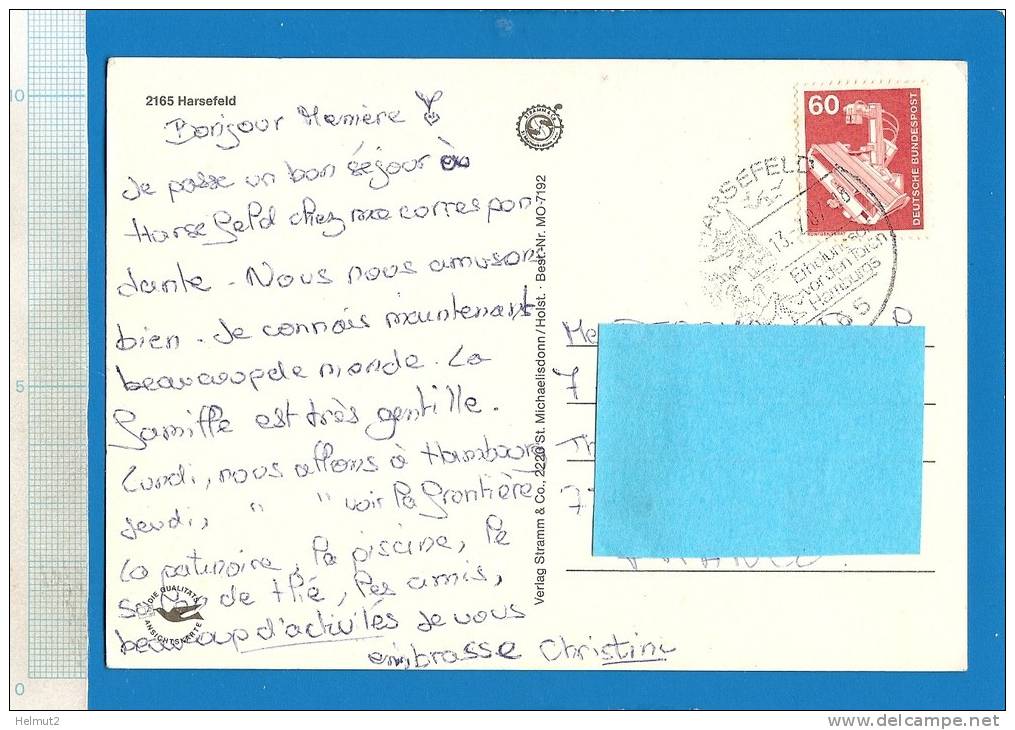 10
5
0
2165 Harsefeld
Bonjour Memère
Je passe un bon séjour à
Harsefeld chez ma correspon
dante. Nous nous amusons
bien. Je connais maintenant
beaucoup de monde. La
famille est très gentille.
Lundi, nous allons à Hambourg
Jeudi, " " voir la frontière
La patinoire, la piscine, le
salon de thé, les amis,
beaucoup d'activités Je vous
embrasse Christine
DIE QUALITÄTS
ANSICHTSKARTE
STRAMM & CO.
Verlag Stramm & Co., 2220 St. Michaelisdonn/Holst. · Best.-Nr. MO-7192
60
DEUTSCHE BUNDESPOST
HARSEFELD
13.-7.87
Erholung
vor den Toren
Hamburgs
2165
7
FRANCE
Helmut2
www.delcampe.net